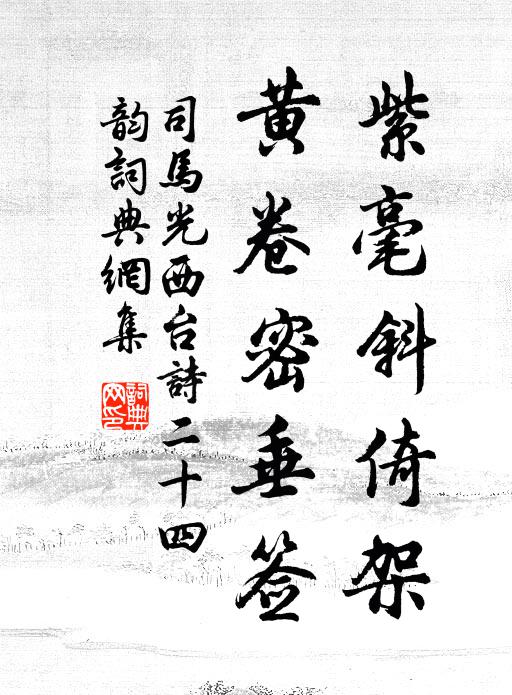 紫毫斜倚架
黄卷密垂签
司馬光西台詩二十四
韵詞典網集
詞典
网印